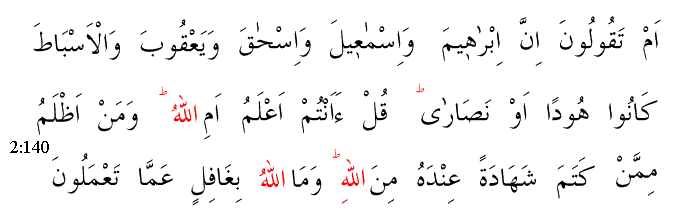 اَمْ تَقُولُونَ اِنَّ اِبْرٰه۪يمَ وَاِسْمٰع۪يلَ وَاِسْحٰقَ وَيَعْقُوبَ وَالْاَسْبَاطَ
كَانُوا هُودًا اَوْ نَصَارٰىۜ قُلْ ءَاَنْتُمْ اَعْلَمُ اَمِ اللّٰهُۜ وَمَنْ اَظْلَمُ
2:140
مِمَّنْ كَتَمَ شَهَادَةً عِنْدَهُ مِنَ اللّٰهِۜ وَمَا اللّٰهُ بِغَافِلٍ عَمَّا تَعْمَلُونَ